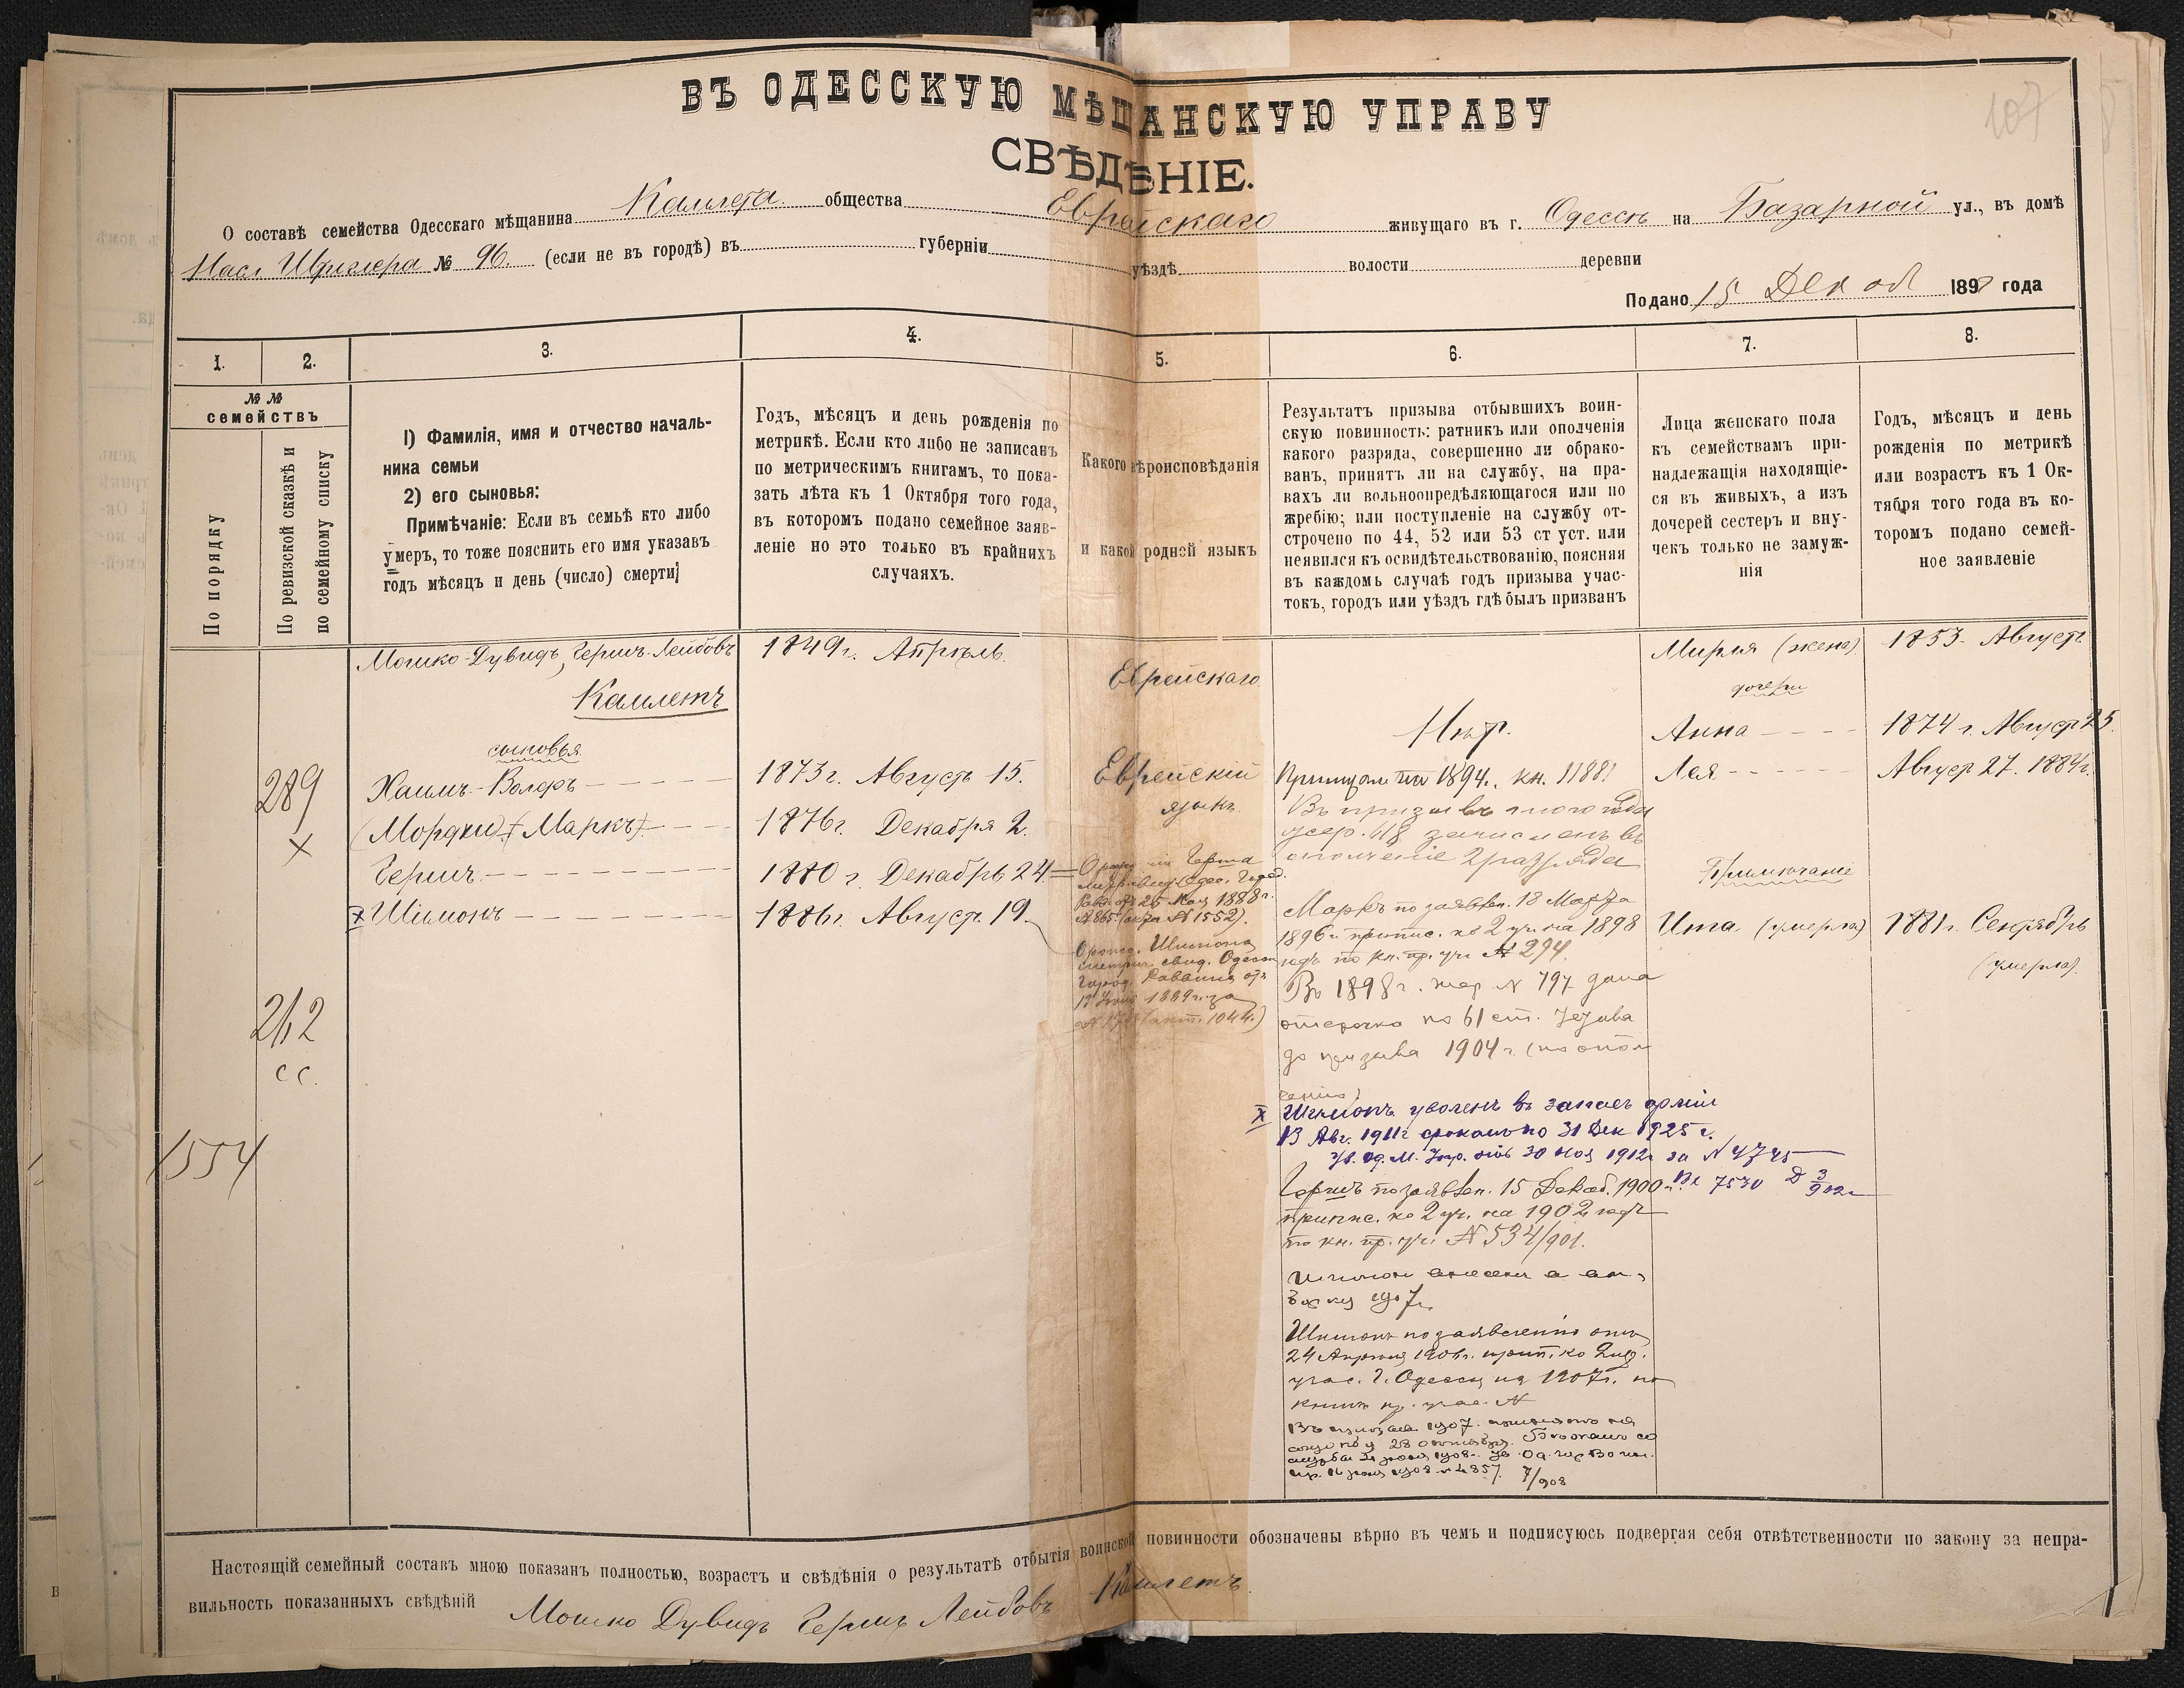 ВЪ ОДЕССКУЮ МѢЩАНСКУЮ УПРАВУ
107
СВѢДѢНІЕ.
О составѣ семейства Одесскаго мѣщанина Камлета общества Еврейскаго живущаго въ г. Одессѣ на Базарной ул., въ домѣ
Насл № 96. (если не въ городѣ) въ губерніи уѣздѣ волости деревни
Подано 15 Декаб 1898 года
1.
2.
3.
4.
5.
6.
7.
8.
№ №
семействъ
По порядку
По ревизской сказкѣ и
по семейному списку
1) Фамилія, имя и отчество началь-
ника семьи
2) его сыновья:
Примѣчаніе: Если въ семьѣ кто либо
умеръ, то тоже пояснить его имя указавъ
годъ мѣсяцъ и день (число) смерти;
Годъ, мѣсяцъ и день рожденія по
метрикѣ. Если кто либо не записанъ
по метрическимъ книгамъ, то пока-
зать лѣта къ 1 Октября того года,
въ которомъ подано семейное заяв-
леніе но это только въ крайнихъ
случаяхъ.
Какого вѣроисповѣданія
и какой родной языкъ
Результатъ призыва отбывшихъ воин-
скую повинность: ратникъ или ополченія
какого разряда, совершенно ли обрако-
ванъ, принятъ ли на службу, на пра-
вахъ ли вольноопредѣляющагося или по
жребію; или поступленіе на службу от-
строчено по 44, 52 или 53 ст уст. или
неявился къ освидѣтельствованію, поясняя
въ каждомъ случаѣ годъ призыва учас-
токъ, городъ или уѣздъ гдѣ былъ призванъ
Лица женскаго пола
къ семействамъ при-
надлежащія находящіе-
ся въ живыхъ, а изъ
дочерей сестеръ и вну-
чекъ только не замуж-
нія
Годъ, мѣсяцъ и день
рожденія по метрикѣ
или возрастъ къ 1 Ок-
тября того года въ ко-
торомъ подано семей-
ное заявленіе
Мошко-Дувидъ, Гершъ-Лейбовъ
Камлетъ
1849 г. Апрѣль.
Еврейскаго
Мирля (жена)
1853. Августъ
дочери
Нѣт.
Анна
1874 г. Август 25.
сыновья
289
Хаимъ-Волфъ
1873 г. Августъ 15.
Еврейскій
языкъ.
1894 г. кн. 1188
Лея
Август 27. 1884 г.
Въ призывъ года
жер. 618 зачисленъ въ
ополченіе 2 разряда
Х
(Мордко) (Маркъ)
1876 г. Декабря 2.
Гершъ
1880 г. Декабрь 24
Герша
Одес. Город.
Рав. отъ 25 Мая 1888 г.
№ 865 (акта № 1552).
Примѣчаніе
Маркъ по заявлен. 18 Марта
1896 г. припис. ко 2 уч. на 1898
годъ по кн. пр. уч. № 294.
Х Шимонъ
1886 г. Август. 19.
Шимона
метрич. свид. Одесск
Город. Раввина отъ
1889 г. за
(акт. 1044.)
Ита (умерла)
1881 г. Сентябрь
(умерла).
212
сс.
1554
Въ 1898 г. жер № 797 дана
отсрочка по 61 ст. Устава
до призыва 1904 г. (по опол
ченію)
Х Шимонъ уволенъ въ запасъ арміи
13 Авг. 1911 г срокомъ по 31 Дек 1925 г.
Ув. Од. М. Упр. отъ 30 ноя 1912 г за № 4745
Вх 7530 Д 3/902 г
Гершъ по заявлен. 15 Декаб. 1900 г.
припис. ко 2 уч. на 1902 годъ
по кн. пр. уч. № 534/901.
Шимон внесенъ в
1907 г.
Шимонъ по заявленію отъ
24 Апрѣля 1906 г. прип. ко 2 пр.
учас. г. Одессы на 1907 г. по
книгѣ пр. учас. №
Въ призывъ 1907. принятъ на
службу 28 октября.
1908 г. ув. Од. гор Во
пр. 1908 № 4857. 7/908
Настоящій семейный составъ мною показанъ полностью, возрастъ и свѣдѣнія о результатѣ отбытія воинской повинности обозначены вѣрно въ чемъ и подписуюсь подвергая себя отвѣтственности по закону за непра-
вильность показанныхъ свѣдѣній Мошко Дувидъ Гершъ Лейбовъ Камлетъ.